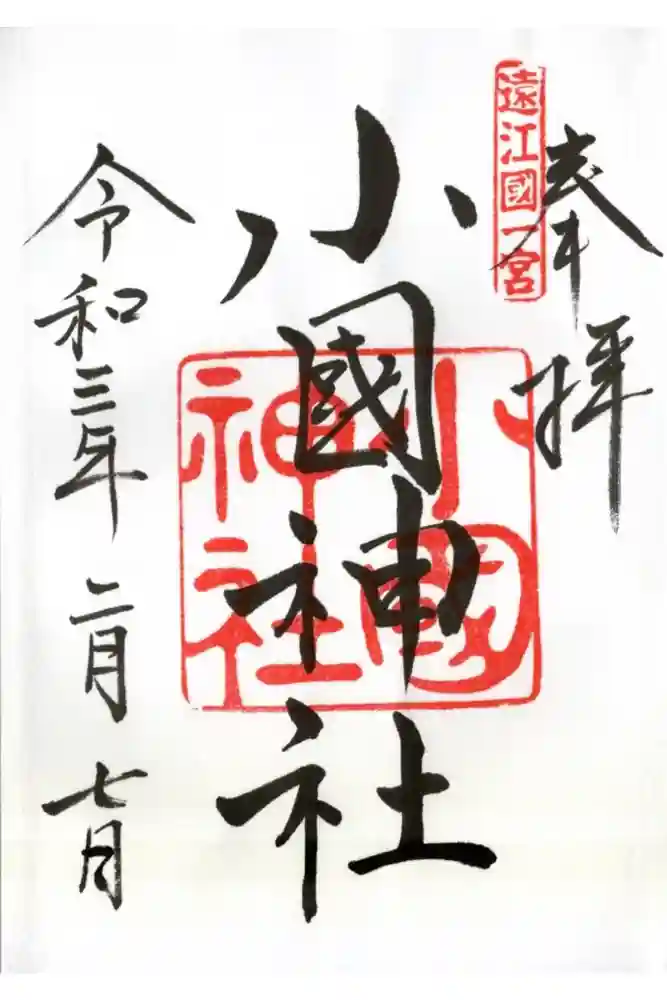 奉拝
遠江國一宮
小國神社
小國神社
令和三年二月七日